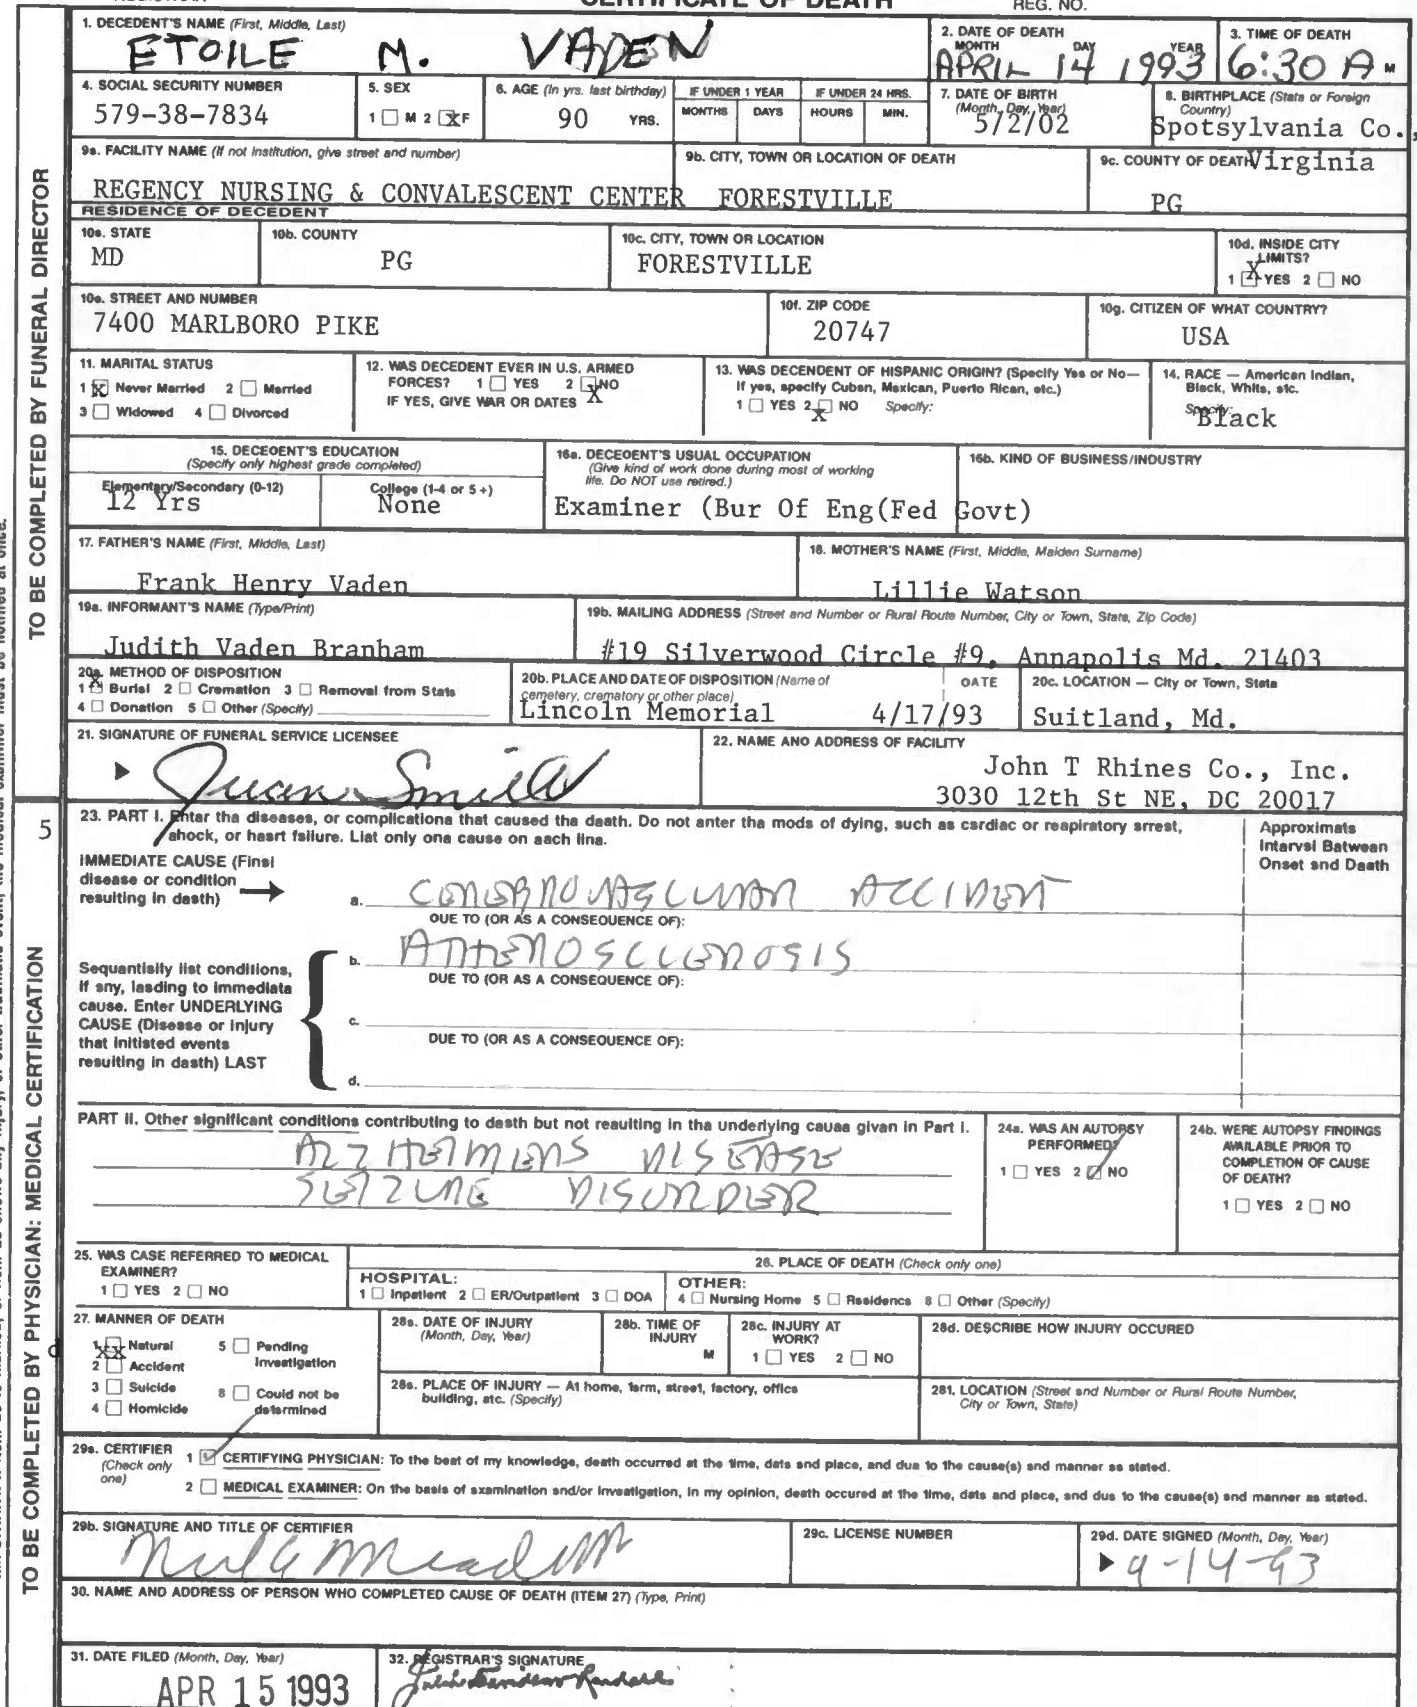 CERTIFICATE OF DEATH
REG. NO.
1. DECEDENT'S NAME (First, Middle, Last)
ETOILE M. VADEN
2. DATE OF DEATH
MONTH DAY YEAR
APRIL 14 1993
3. TIME OF DEATH
6:30 A M
4. SOCIAL SECURITY NUMBER
579-38-7834
5. SEX
1 M 2 X F
6. AGE (In yrs. last birthday)
90 YRS.
IF UNDER 1 YEAR
MONTHS DAYS
IF UNDER 24 HRS.
HOURS MIN.
7. DATE OF BIRTH
(Month, Day, Year)
5/2/02
8. BIRTHPLACE (State or Foreign
Country)
Spotsylvania Co.,
Virginia
9a. FACILITY NAME (If not institution, give street and number)
REGENCY NURSING & CONVALESCENT CENTER
9b. CITY, TOWN OR LOCATION OF DEATH
FORESTVILLE
9c. COUNTY OF DEATH
PG
RESIDENCE OF DECEDENT
10a. STATE
MD
10b. COUNTY
PG
10c. CITY, TOWN OR LOCATION
FORESTVILLE
10d. INSIDE CITY
LIMITS?
1 X YES 2 NO
10e. STREET AND NUMBER
7400 MARLBORO PIKE
10f. ZIP CODE
20747
10g. CITIZEN OF WHAT COUNTRY?
USA
11. MARITAL STATUS
1 X Never Married 2 Married
3 Widowed 4 Divorced
12. WAS DECEDENT EVER IN U.S. ARMED
FORCES? 1 YES 2 X NO
IF YES, GIVE WAR OR DATES
13. WAS DECENDENT OF HISPANIC ORIGIN? (Specify Yes or No—
If yes, specify Cuban, Mexican, Puerto Rican, etc.)
1 YES 2 X NO Specify:
14. RACE — American Indian,
Black, White, etc.
Specify:
Black
15. DECEDENT'S EDUCATION
(Specify only highest grade completed)
Elementary/Secondary (0-12)
12 Yrs
College (1-4 or 5+)
None
16a. DECEDENT'S USUAL OCCUPATION
(Give kind of work done during most of working
life. Do NOT use retired.)
16b. KIND OF BUSINESS/INDUSTRY
Examiner (Bur Of Eng(Fed Govt)
17. FATHER'S NAME (First, Middle, Last)
Frank Henry Vaden
18. MOTHER'S NAME (First, Middle, Maiden Surname)
Lillie Watson
19a. INFORMANT'S NAME (Type/Print)
Judith Vaden Branham
19b. MAILING ADDRESS (Street and Number or Rural Route Number, City or Town, State, Zip Code)
#19 Silverwood Circle #9, Annapolis Md. 21403
20a. METHOD OF DISPOSITION
1 X Burial 2 Cremation 3 Removal from State
4 Donation 5 Other (Specify)
20b. PLACE AND DATE OF DISPOSITION (Name of
cemetery, crematory or other place)
DATE
Lincoln Memorial 4/17/93
20c. LOCATION — City or Town, State
Suitland, Md.
21. SIGNATURE OF FUNERAL SERVICE LICENSEE
Juan Smith
22. NAME AND ADDRESS OF FACILITY
John T Rhines Co., Inc.
3030 12th St NE, DC 20017
TO BE COMPLETED BY FUNERAL DIRECTOR
5
23. PART I. Enter the diseases, or complications that caused the death. Do not enter the mode of dying, such as cardiac or respiratory arrest,
shock, or heart failure. List only one cause on each line.
Approximate
Interval Between
Onset and Death
IMMEDIATE CAUSE (Final
disease or condition
resulting in death)
a. CEREBROVASCULAR ACCIDENT
DUE TO (OR AS A CONSEQUENCE OF):
Sequentially list conditions,
if any, leading to immediate
cause. Enter UNDERLYING
CAUSE (Disease or injury
that initiated events
resulting in death) LAST
b. ATHEROSCLEROSIS
DUE TO (OR AS A CONSEQUENCE OF):
c.
DUE TO (OR AS A CONSEQUENCE OF):
d.
PART II. Other significant conditions contributing to death but not resulting in the underlying cause given in Part I.
ALZHEIMERS DISEASE
SEIZURE DISORDER
24a. WAS AN AUTOPSY
PERFORMED?
1 YES 2 NO
24b. WERE AUTOPSY FINDINGS
AVAILABLE PRIOR TO
COMPLETION OF CAUSE
OF DEATH?
1 YES 2 NO
25. WAS CASE REFERRED TO MEDICAL
EXAMINER?
1 YES 2 NO
26. PLACE OF DEATH (Check only one)
HOSPITAL:
1 Inpatient 2 ER/Outpatient 3 DOA
OTHER:
4 Nursing Home 5 Residence 6 Other (Specify)
27. MANNER OF DEATH
1 XX Natural 5 Pending
Investigation
2 Accident
3 Suicide 6 Could not be
determined
4 Homicide
28a. DATE OF INJURY
(Month, Day, Year)
28b. TIME OF
INJURY
M
28c. INJURY AT
WORK?
1 YES 2 NO
28d. DESCRIBE HOW INJURY OCCURED
28e. PLACE OF INJURY — At home, farm, street, factory, office
building, etc. (Specify)
28f. LOCATION (Street and Number or Rural Route Number,
City or Town, State)
29a. CERTIFIER
(Check only
one)
1 CERTIFYING PHYSICIAN: To the best of my knowledge, death occurred at the time, date and place, and due to the cause(s) and manner as stated.
2 MEDICAL EXAMINER: On the basis of examination and/or investigation, in my opinion, death occured at the time, date and place, and due to the cause(s) and manner as stated.
29b. SIGNATURE AND TITLE OF CERTIFIER
29c. LICENSE NUMBER
29d. DATE SIGNED (Month, Day, Year)
4-14-93
30. NAME AND ADDRESS OF PERSON WHO COMPLETED CAUSE OF DEATH (ITEM 27) (Type, Print)
31. DATE FILED (Month, Day, Year)
APR 15 1993
32. REGISTRAR'S SIGNATURE
TO BE COMPLETED BY PHYSICIAN: MEDICAL CERTIFICATION